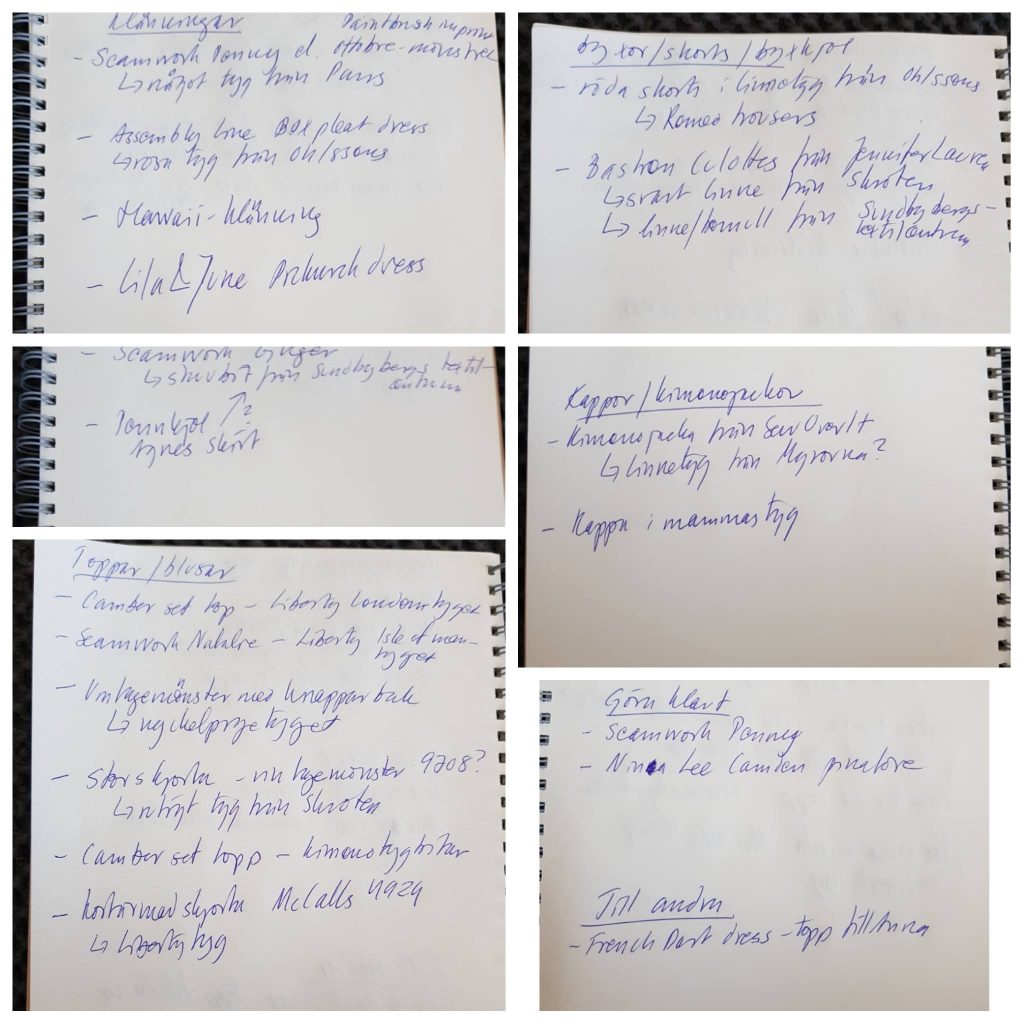 Klänningar
Seamwork Penney el. Ottobre-mönstret
↳ något tyg från Paris
- Assembly Line Box pleat dress
↳ rosa tyg från Ohlssons
- Hawaii-klänning
- Lila & June dress
byxor/shorts/byxkjol
- röda shorts i linnetyg från Ohlssons
↳ Romeo trousers
- Bastion Culottes från Jennifer Lauren
↳ svart linne från Skroten
↳ linne/bomull från Sundbybergs-
textilcentrum
- Seamwork
↳ stuvbit från Sundbybergs textil-
centrum
- Pennkjol ?
Agnes skirt
Kappor/kimonojackor
- Kimonojacka från Sew Over It
↳ Linnetyg från Myrorna?
- Kappa i mammas tyg
Toppar/blusar
- Camber set top - Liberty Londontyget
- Seamwork Natalie - Liberty Isle of man-
tyget
- Vintagemönster med knappar bak
↳ nyckelpigetyget
- Stor skjorta - vintagemönster 9708?
↳ tyg från Skroten
- Camber set topp - kimonotygbitar
- Kortärmad skjorta McCalls 4929
↳ Libertytyg
Göra klart
- Seamwork Penney
- Nina Lee Camden pinafore
Till andra
- French Dart dress - topp till